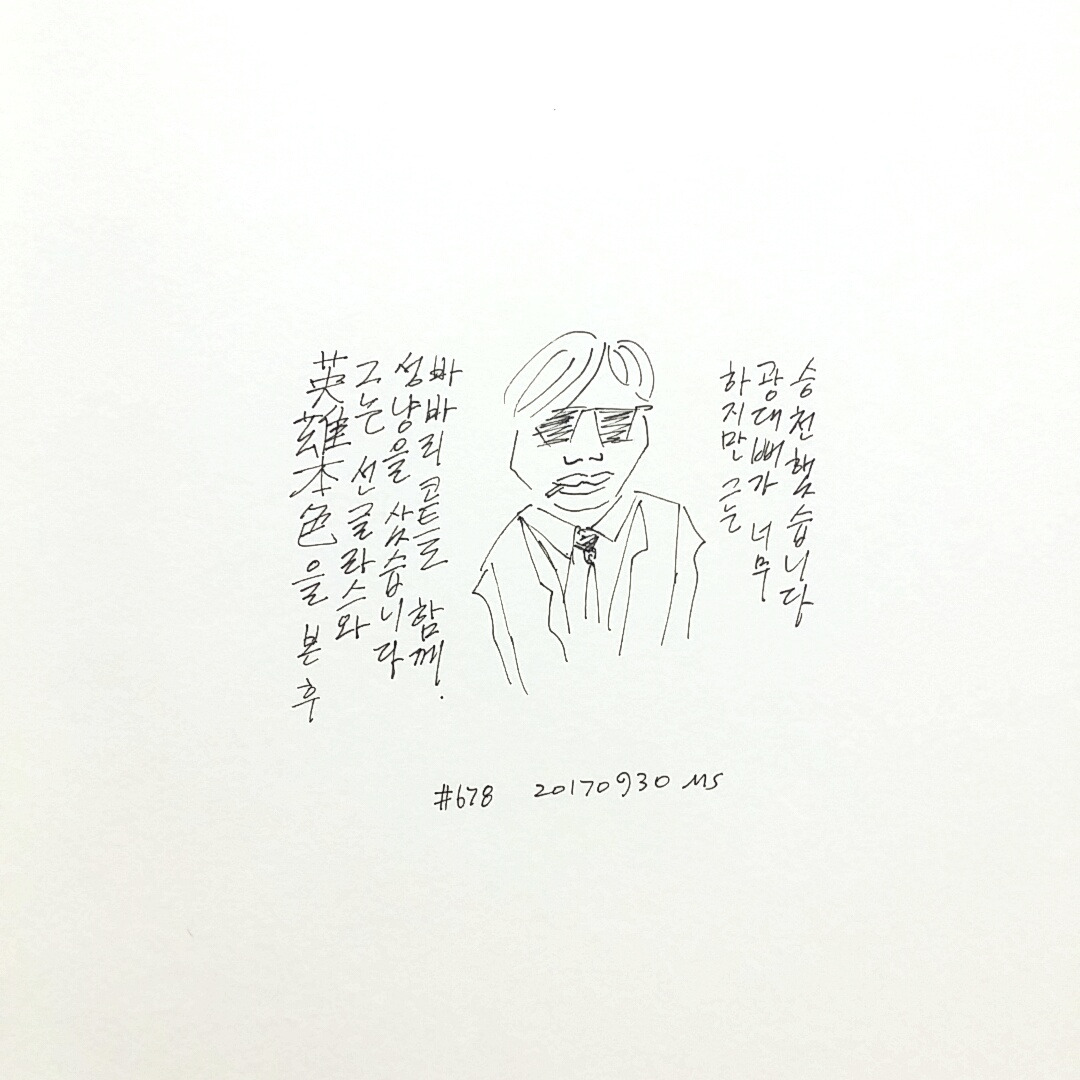 英雄本色을 본 후
그는 선글라스와
성냥을 샀습니다
빠바리 코트도 함께.
하지만 그는
광대뼈가 너무
승천했습니다
#678 20170930 MS